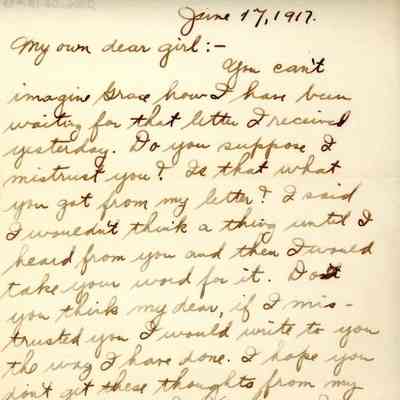 June 17, 1917.
My own dear girl:-
You can't
imagine Grace how I have been
waiting for that letter I received
yesterday. Do you suppose I
mistrust you? Is that what
you got from my letter? I said
I wouldn't think a thing until I
heard from you and then I would
take your word for it. Don't
you think my dear, if I mis-
trusted you I would write to you
the way I have done. I hope you
don't get these thoughts from my